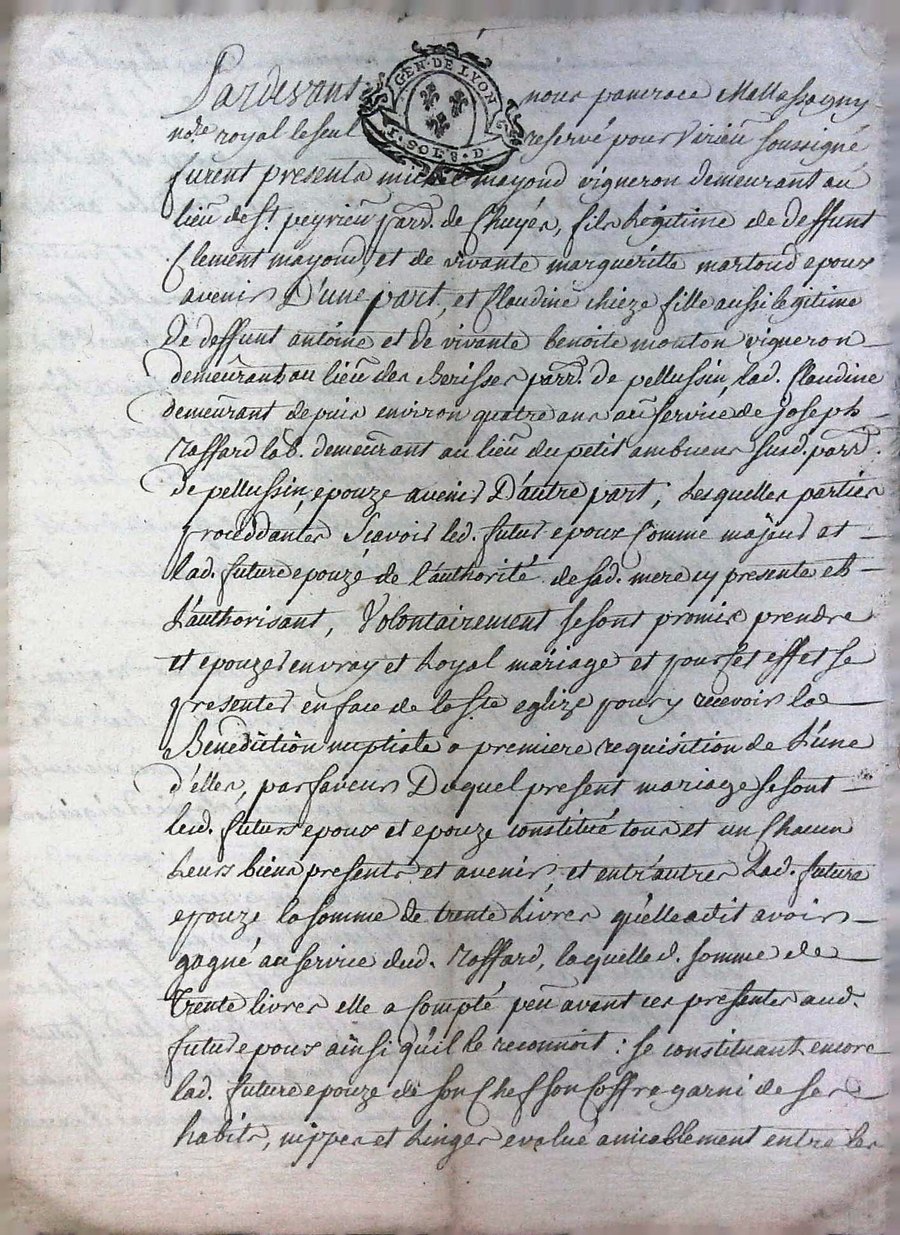 GEN. DE LYON
1. SOLS. D.
Pardevant nous pancrace Mallassagny
no.re royal le seul reservé pour Virieu soussigné
furent presents mayoud vigneron demeurant au
lieu de St. peyrieu parr. de Chuyés, fils Légitime de deffunt
Clement mayoud, et de vivante marguéritte martoud epoux
avenir D'une part, et Claudine chieze fille aussi legitime
de deffunt antoine et de vivante benoite mouton vigneron
demeurant au lieu des Berisses parr. de pellussin, lad. Claudine
demeurant depuis environ quatre ans au service de Joseph
Raffard lab. demeurant au lieu du petit ambuens susd. parr.
de pellussin, epouze avenir D'autre part, Lesquelles parties
procéddantes Scavoir led. futur epoux Comme majeur et
lad. future epouze de l'authorité de sad. mere cy presente et
L'authorisant, Volontairement se sont promis prendre
et epouzer en vray et Loyal mariage et pour set effet se
presenter en face de la Ste eglize pour y recevoir la
Benediction nuptiale a premiere requisition de L'une
d'elles, par faveur Duquel present mariage se sont
led. futurs epoux et epouze constitué tous et un Chacun
Leurs biens presents et avenir, et entr'autres Lad. future
epouze la somme de trente Livres qu'elle a dit avoir
gagné au service dud. Raffard, laquelle d. somme de
Trente livres elle a Compté peu avant ces presentes aud.
futur epoux ainsi qu'il le reconnoit : se constituant encore
lad. future epouze de son Chef son Coffre garni de ses
habits, nippes et Linges evalué amiablement entre les